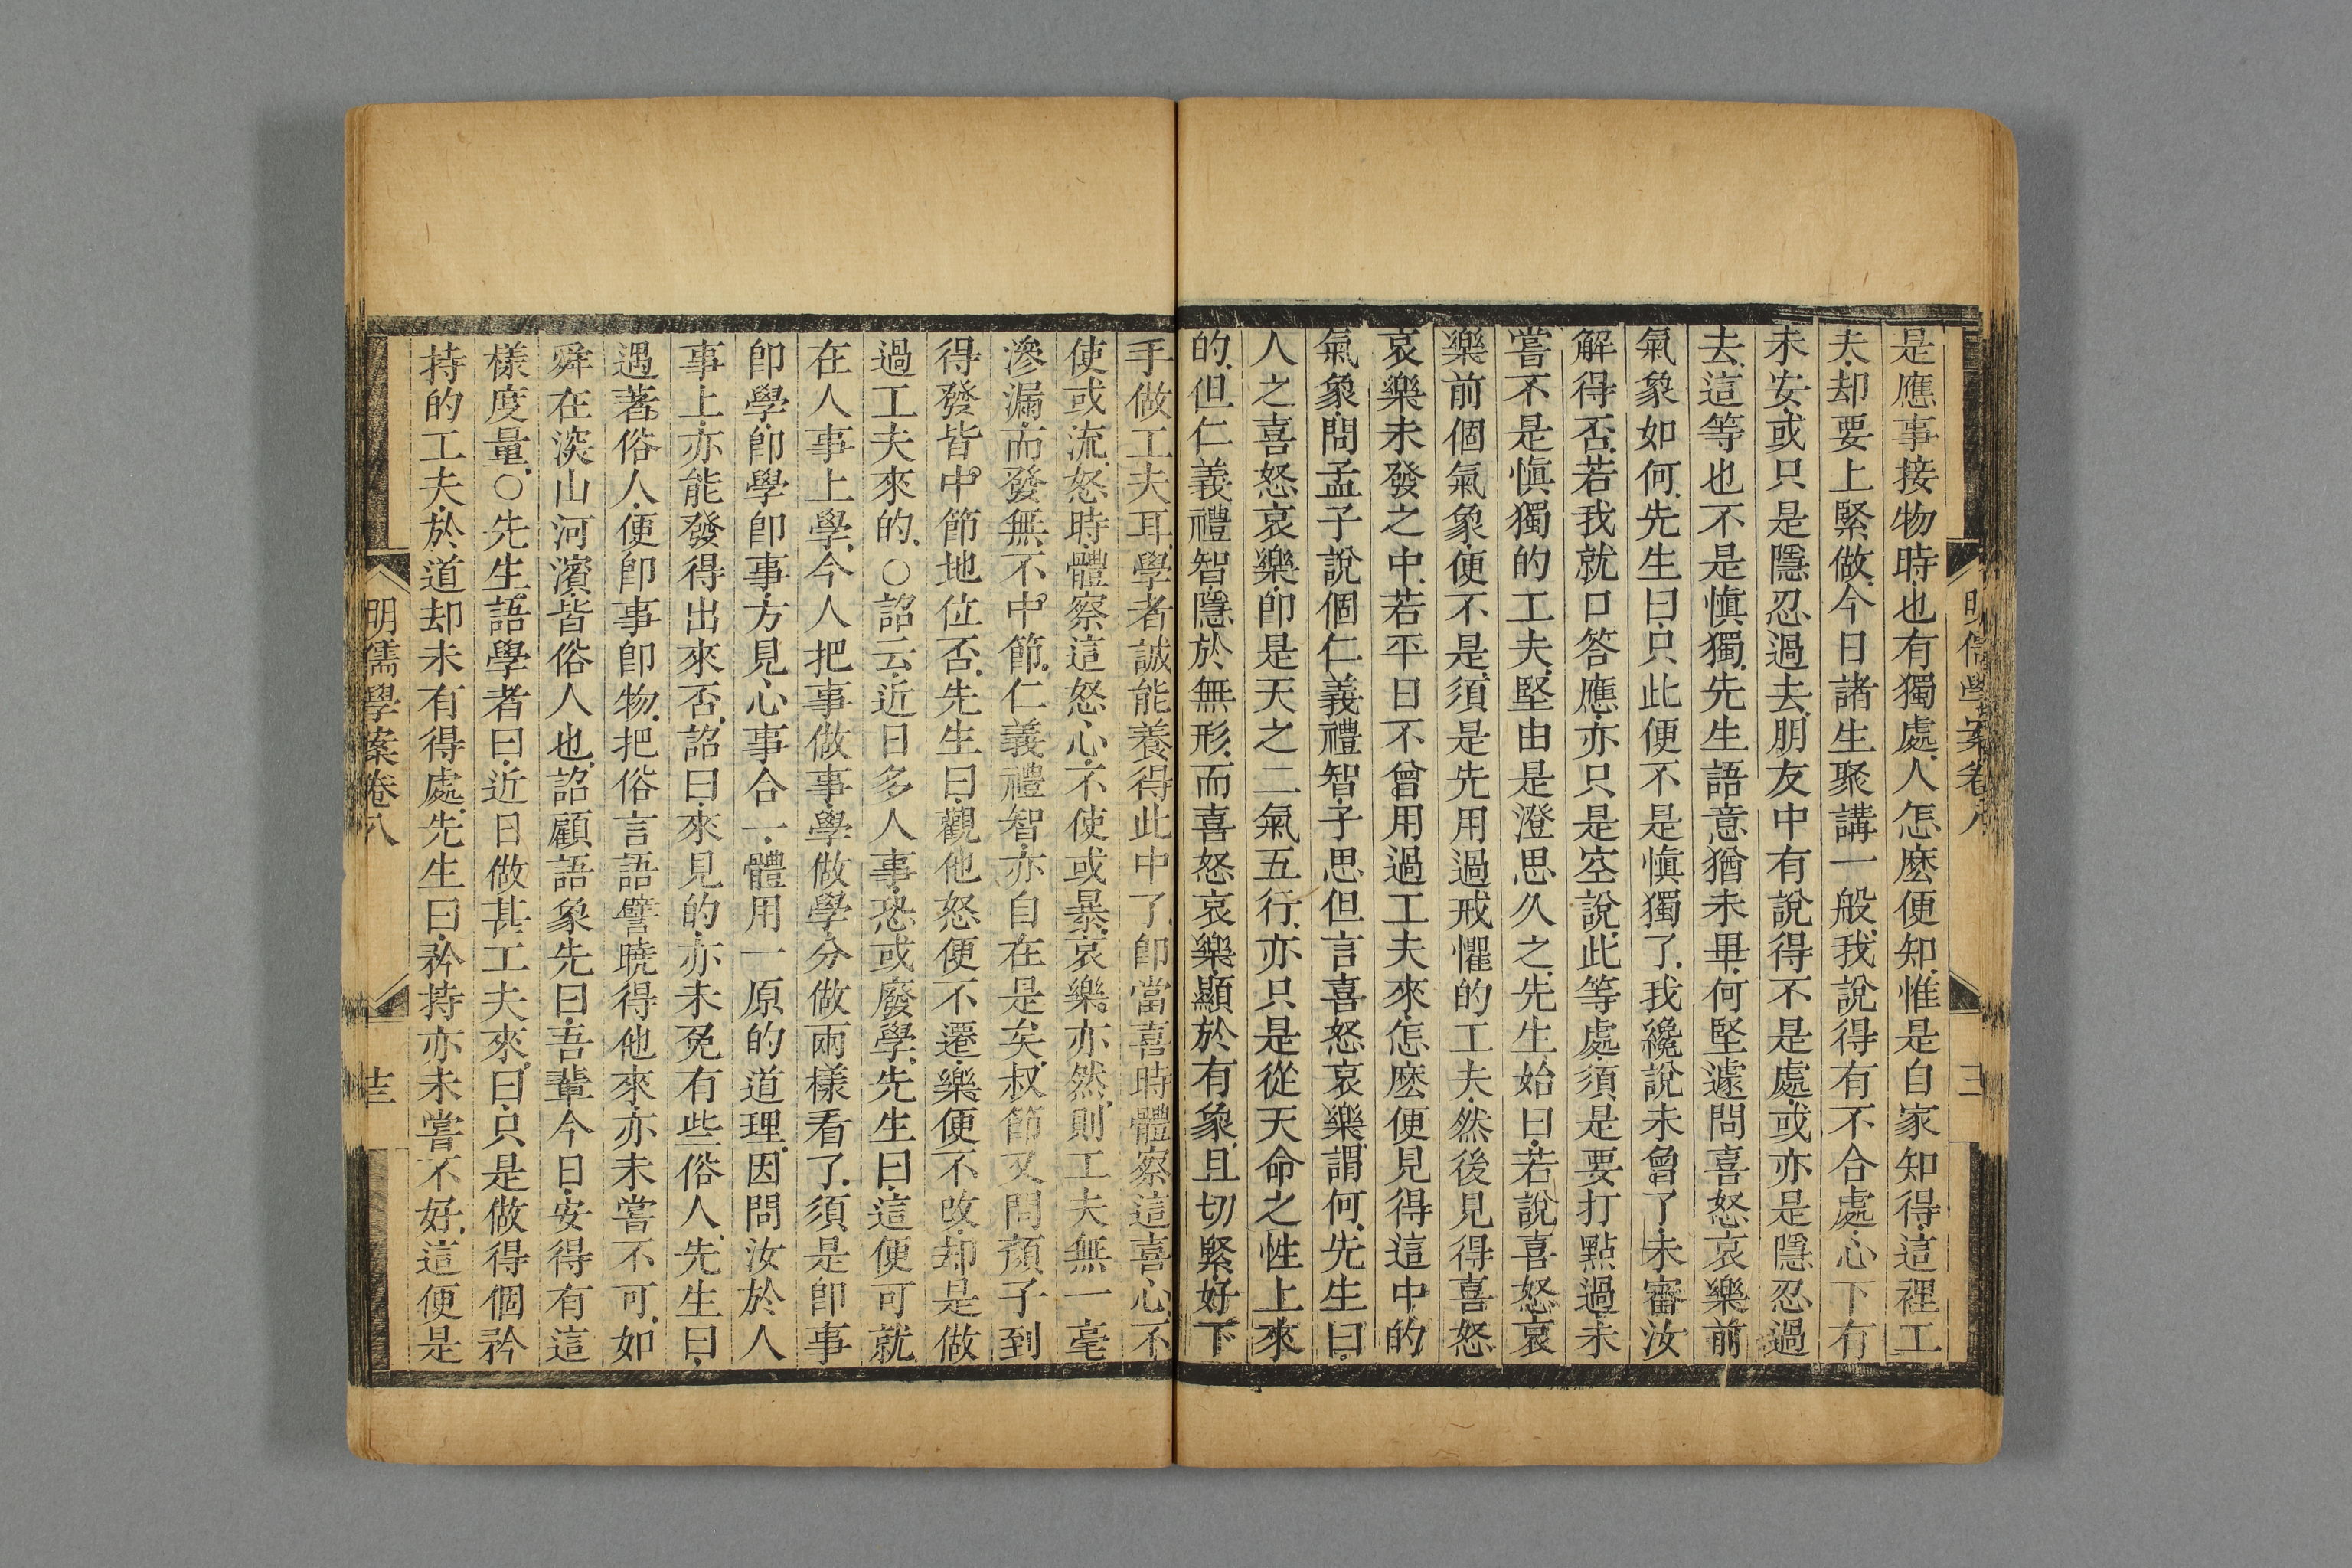 是應事接物時也有獨處人怎麽便知惟是自家知得這裡工
夫却要上緊做今日諸生聚講一般我說得有不合處心下有
未安或只是隱忍過去朋友中有說得不是處或亦是隱忍過
去這等也不是愼獨先生語意猶未畢何堅遽問喜怒哀樂前
氣象如何先生曰只此便不是愼獨了我纔說未曾了未審汝
解得否若我就口答應亦只是空說此等處須是要打點過未
嘗不是愼獨的工夫堅由是澄思久之先生始曰若說喜怒哀
樂前個氣象便不是須是先用過戒懼的工夫然後見得喜怒
哀樂未發之中若平日不曾用過工夫來怎麽便見得這中的
氣象問孟子說個仁義禮智子思但言喜怒哀樂謂何先生曰
人之喜怒哀樂卽是天之二氣五行亦只是從天命之性上來
的但仁義禮智隱於無形而喜怒哀樂顯於有象且切緊好下
手做工夫耳學者誠能養得此中了卽當喜時體察這喜心不
使或流怒時體察這怒心不使或暴哀樂亦然則工夫無一毫
滲漏而發無不中節仁義禮智亦自在是矣叔節又問顏子到
得發皆中節地位否先生曰觀他怒便不遷樂便不改却是做
過工夫來的○詔云近日多人事恐或廢學先生曰這便可就
在人事上學今人把事做事學做學分做兩樣看了須是卽事
卽學卽學卽事方見心事合一體用一原的道理因問汝於人
事上亦能發得出來否詔曰來見的亦未免有些俗人先生曰
遇著俗人便卽事卽物把俗言語譬曉得他來亦未嘗不可如
舜在深山河濱皆俗人也詔顧語象先曰吾輩今日安得有這
樣度量○先生語學者曰近日做甚工夫來曰只是做得個矜
持的工夫於道却未有得處先生曰矜持亦未嘗不好這便是
明儒學案卷八
十三